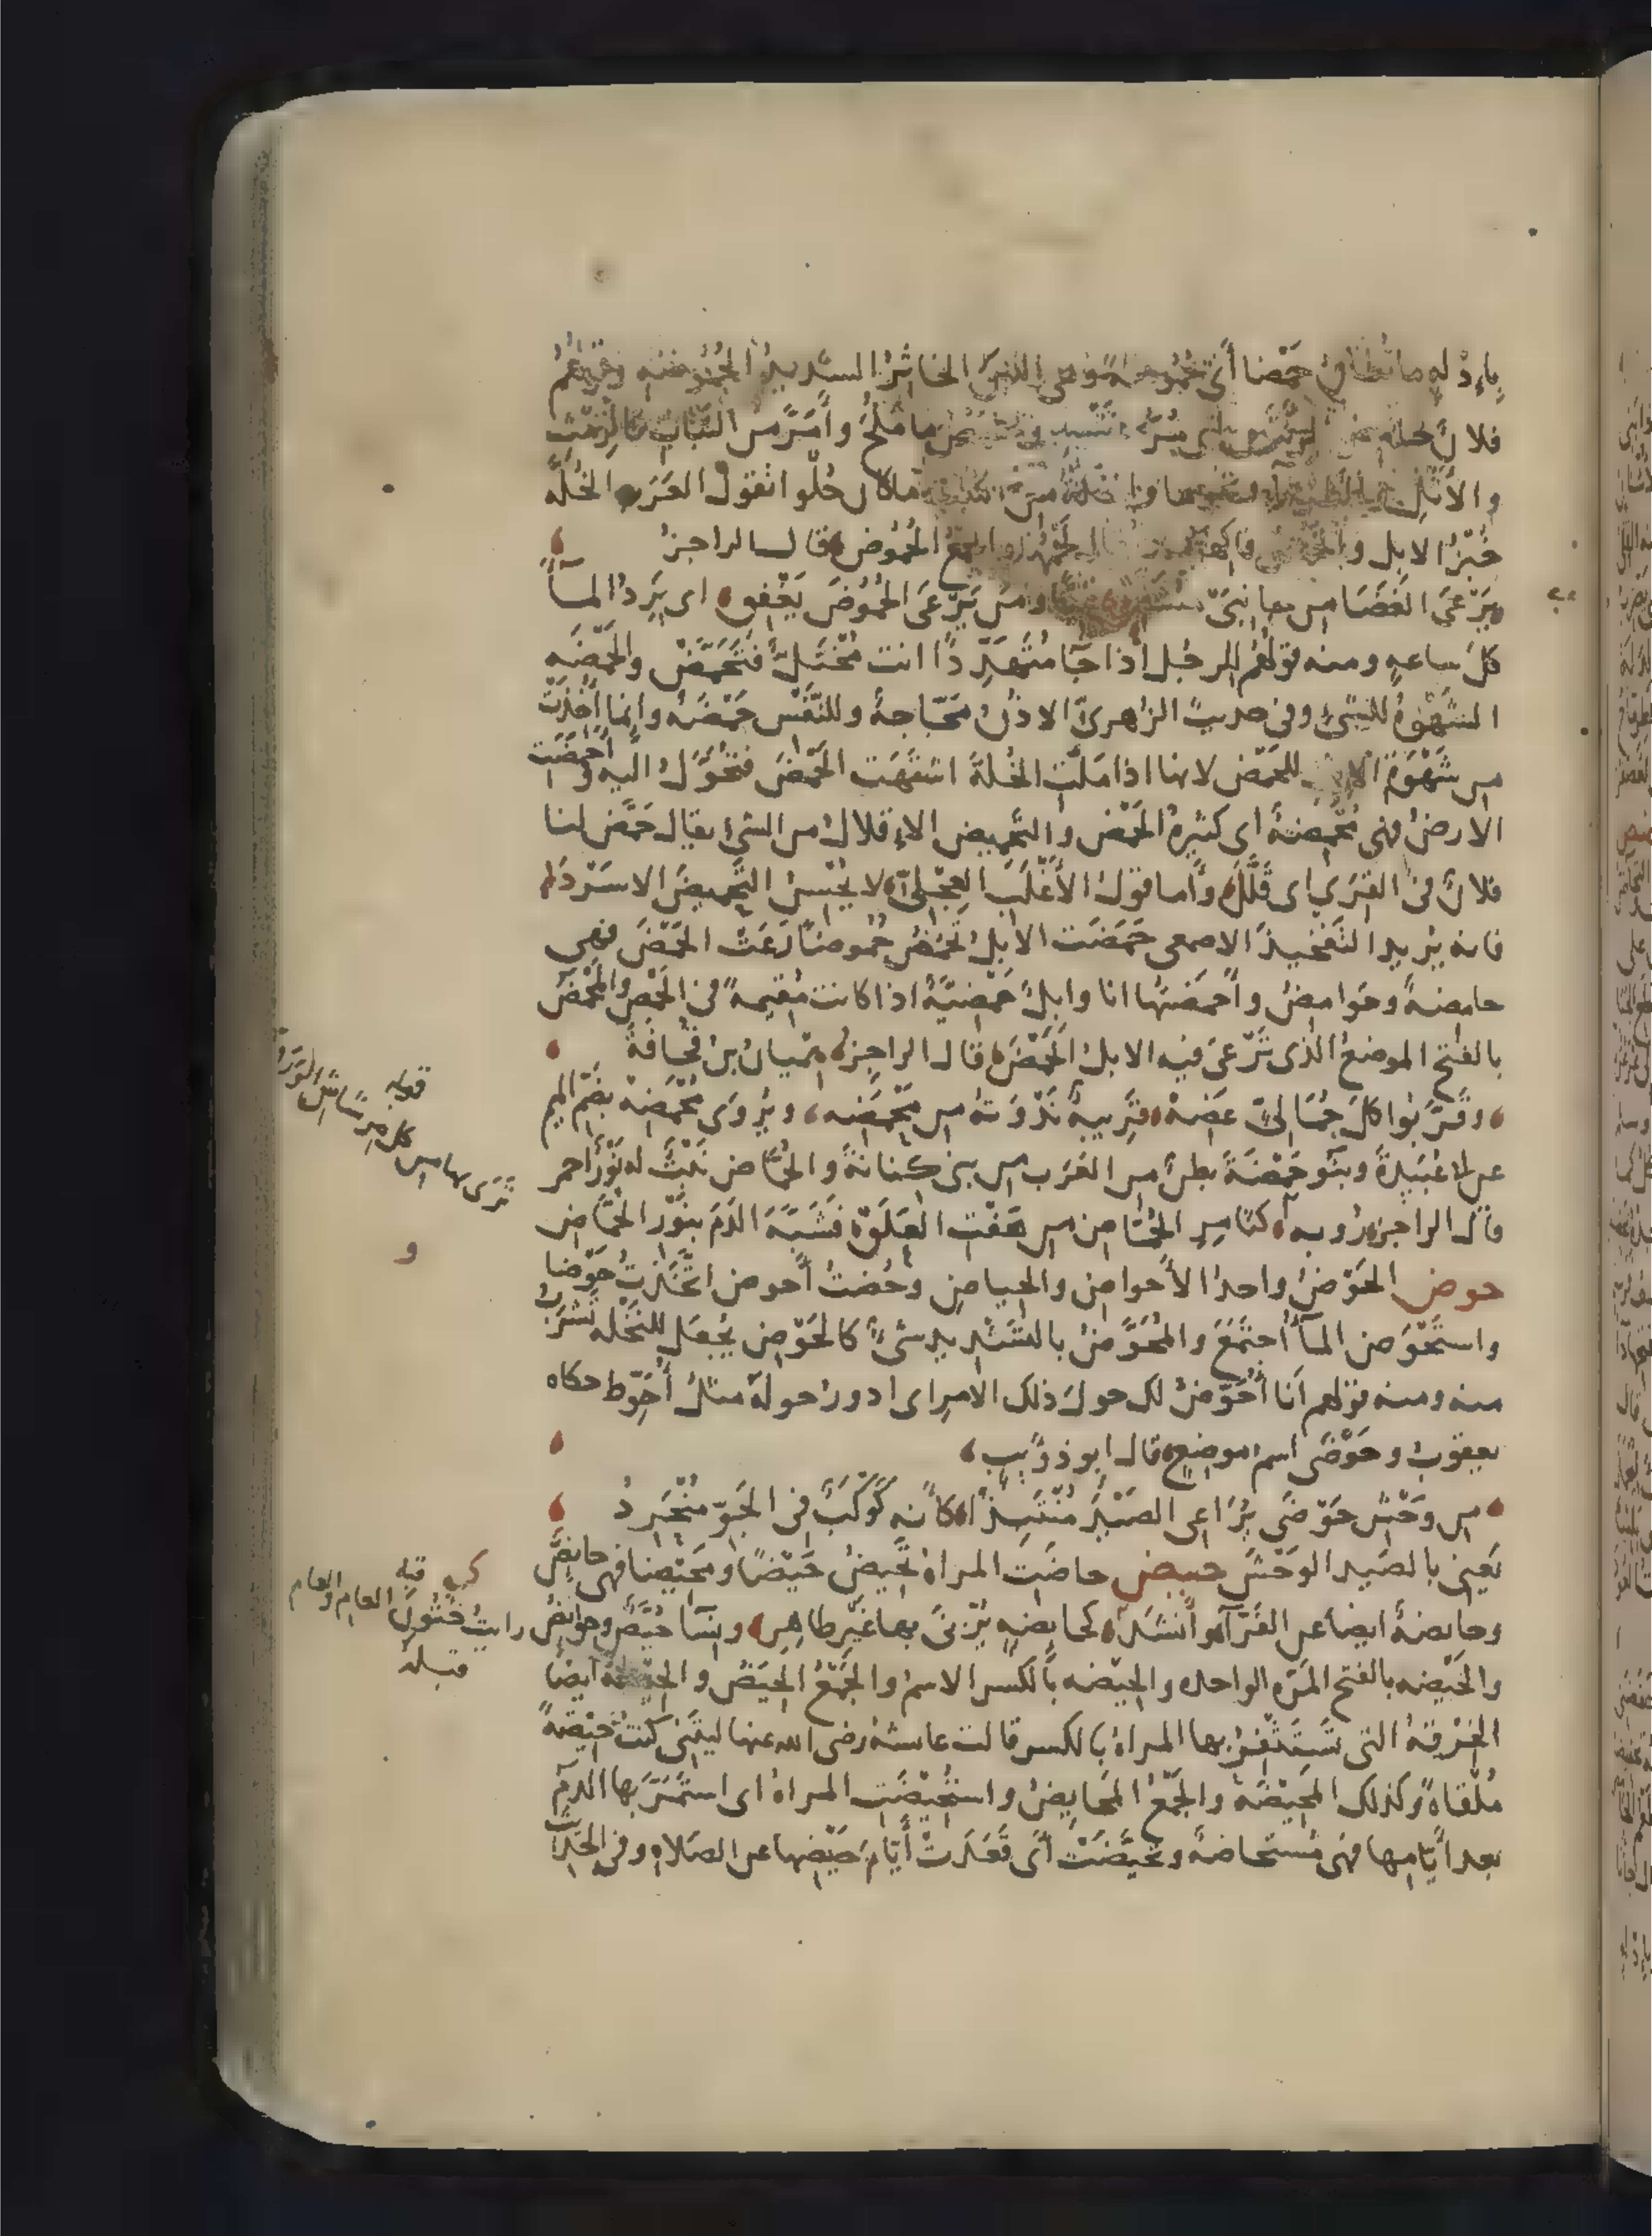 بإدْلِهِ ما تُطاقُ حَمْضا أى حُموضةً وهى اللبَنُ الخاثِرُ الشديدُ الحُمُوضَه وقولهُم
فلانٌ ما مَلُحَ وأمَرَّ من النَّبَات كالرِّمْثِ
والأَثْلِ والطَّرْفَآءِ ونحوِها والخُلَّةُ من النَّباتِ ما كان حُلْوا تقول العَرَب الخُلَّه
خُبْزُ الابل والحَمْضُ فاكهتُها والجمعُ الحُمُوض قال الراجزُ
يَرْعَى الغَضَا من جانِبَىْ ومَن يَرْعَى الحُمُوضَ يَغْفِق اى يَرِدُ المآ
كلَ ساعهٍ ومنه قولهُم للرجُل اذا جآ مُتَهَدِّدًا انت مُخْتَلٌّ فَتَحَمَّضْ والحَمْضَه
الشَهْوَهُ للشىءِ وفى حديث الزُهرىّ الاذُنُ مَجّاجةٌ وللنَّفْس حَمْضَهٌ وانما اُخِذَتْ
من شَهْوَةِ الابل للحَمْض لانها اذا مَلَّت الخُلةَ اشتَهَت الحَمْضَ فتحَوَّلُ اليه واَحمَضَت
الارضُ فهى مُحْمِضةٌ اى كثيرهُ الحَمْض والتَّحْميض الاِقلالُ من الشىءِ يقال حَمَّضَ لنا
فلانٌ فى القِرَى اى قَلَّلَ وأما قولُ الأَغْلَبِ العِجْلىّ لا يُحْسِنُ التَّحْميضَ الا سَرْدَا
فانه يُريد التَّفْخيذَ الاصمعى حَمَضَت الابلُ تَحْمُضُ حُموضًا رَعَتْ الحَمْضَ فهى
حامضةٌ وحَوامِضُ وأحمَضتُها انا وابلٌ حَمْضيَّةٌ اذا كانت مُقيمهً فى الحَمْض والمَحْمَضُ
بالفتح الموضعُ الذى تَرْعَى فيه الابلُ الحَمْضَ قال الراجزُ هِمْيانُ بنُ قُحافَةَ
وقَرَّبُوا كلَّ جُمَالِىٍّ عَضِهْ قَريبةٌ نُدْوَتهُ من مَحْمَضِه ويُروَى مُحْمَضِهْ بضَمّ الميم
عن ابى عُبَيدةَ وبَنُو حَمْضَةَ بطنٌ من العَرَب من بنى كنانَةَ والحُمَّاض نَبْتٌ له نَوْرٌ احمر
قال الراجز رُوبه كثامِرِ الحُمّاض من هَفْتِ العَلَقْ فشَبَّهَ الدَمَ بنَوْر الحُمَّاض
حوض الحَوْضُ واحدُ الأحواض والحِياضِ وحُضتُ أحوض اتَّخَذتُ حَوْضا
واستَحْوَض المآ أجتَمَعَ والمُحَوَّضُ بالتشديد شىءٌ كالحَوْض يُجعَل للنَخْله تَشرَبُ
منه ومنه قولهم أنا اُحَوِّضُ لك حولَ ذلك الامرِ اى ادورُ حولَه مثلُ أُحَوِّط حكاه
يعقوب وحَوْضَى اسم موضعٍ قال ابو ذُؤَيبٍ
من وَحْشِ حَوْضَى يُرَاعِى الصَيْدَ مُنْتَبِذًا كأنه كَوْكَبٌ فى الجَوِّ مُنْحَرِدُ
يَعنى بالصَيد الوَحْشَ حيض حاضَت المراهُ تَحيضُ حَيْضًا ومَحيضا فهى حايضٌ
وحايضهٌ ايضا عن الفَرّآ وأنشدَ كحايضهٍ يُزْنَى بها غَيْرَ طاهِرِ ونسآ حُيَّضٌ وحوايضُ
والحَيْضه بالفتح المَرّه الواحده والحِيْضه بالكسر الاسمُ والجَمْعُ الحِيَضُ والحِيضهُ ايضا
الخِرْقهُ التى تَسْتَثْفِرُ بها المراهُ بالكسر قالت عائشهُ رضى الله عنها ليتَنى كنتُ حِيْضهً
مُلْقاهً وكذلك المَحِيْضَهُ والجَمْعُ المَحَايضُ واستُحِيْضَتِ المراهُ اى استَمَرَّ بها الدم
بعد أيّامِها فهى مُستحاضهٌ وتَحَيَّضَتْ أى قَعَدَتْ أيّامَ حَيْضِها عن الصَلاه وفى الحديث
قوله
تَرَى بها من كل
و
رايتُ خُتُونَ العام والعام
قبله